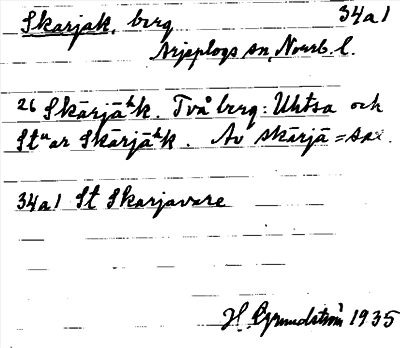 Skarjak, berg 34a1
Arjeplogs sn, Norrb. l.
26 Skārjāʰk. Två berg: Uhtsa och
Stuar Skārjāʰk. Av skārjā = sax.
34a1 St Skarjavare
H. Grundström 1935